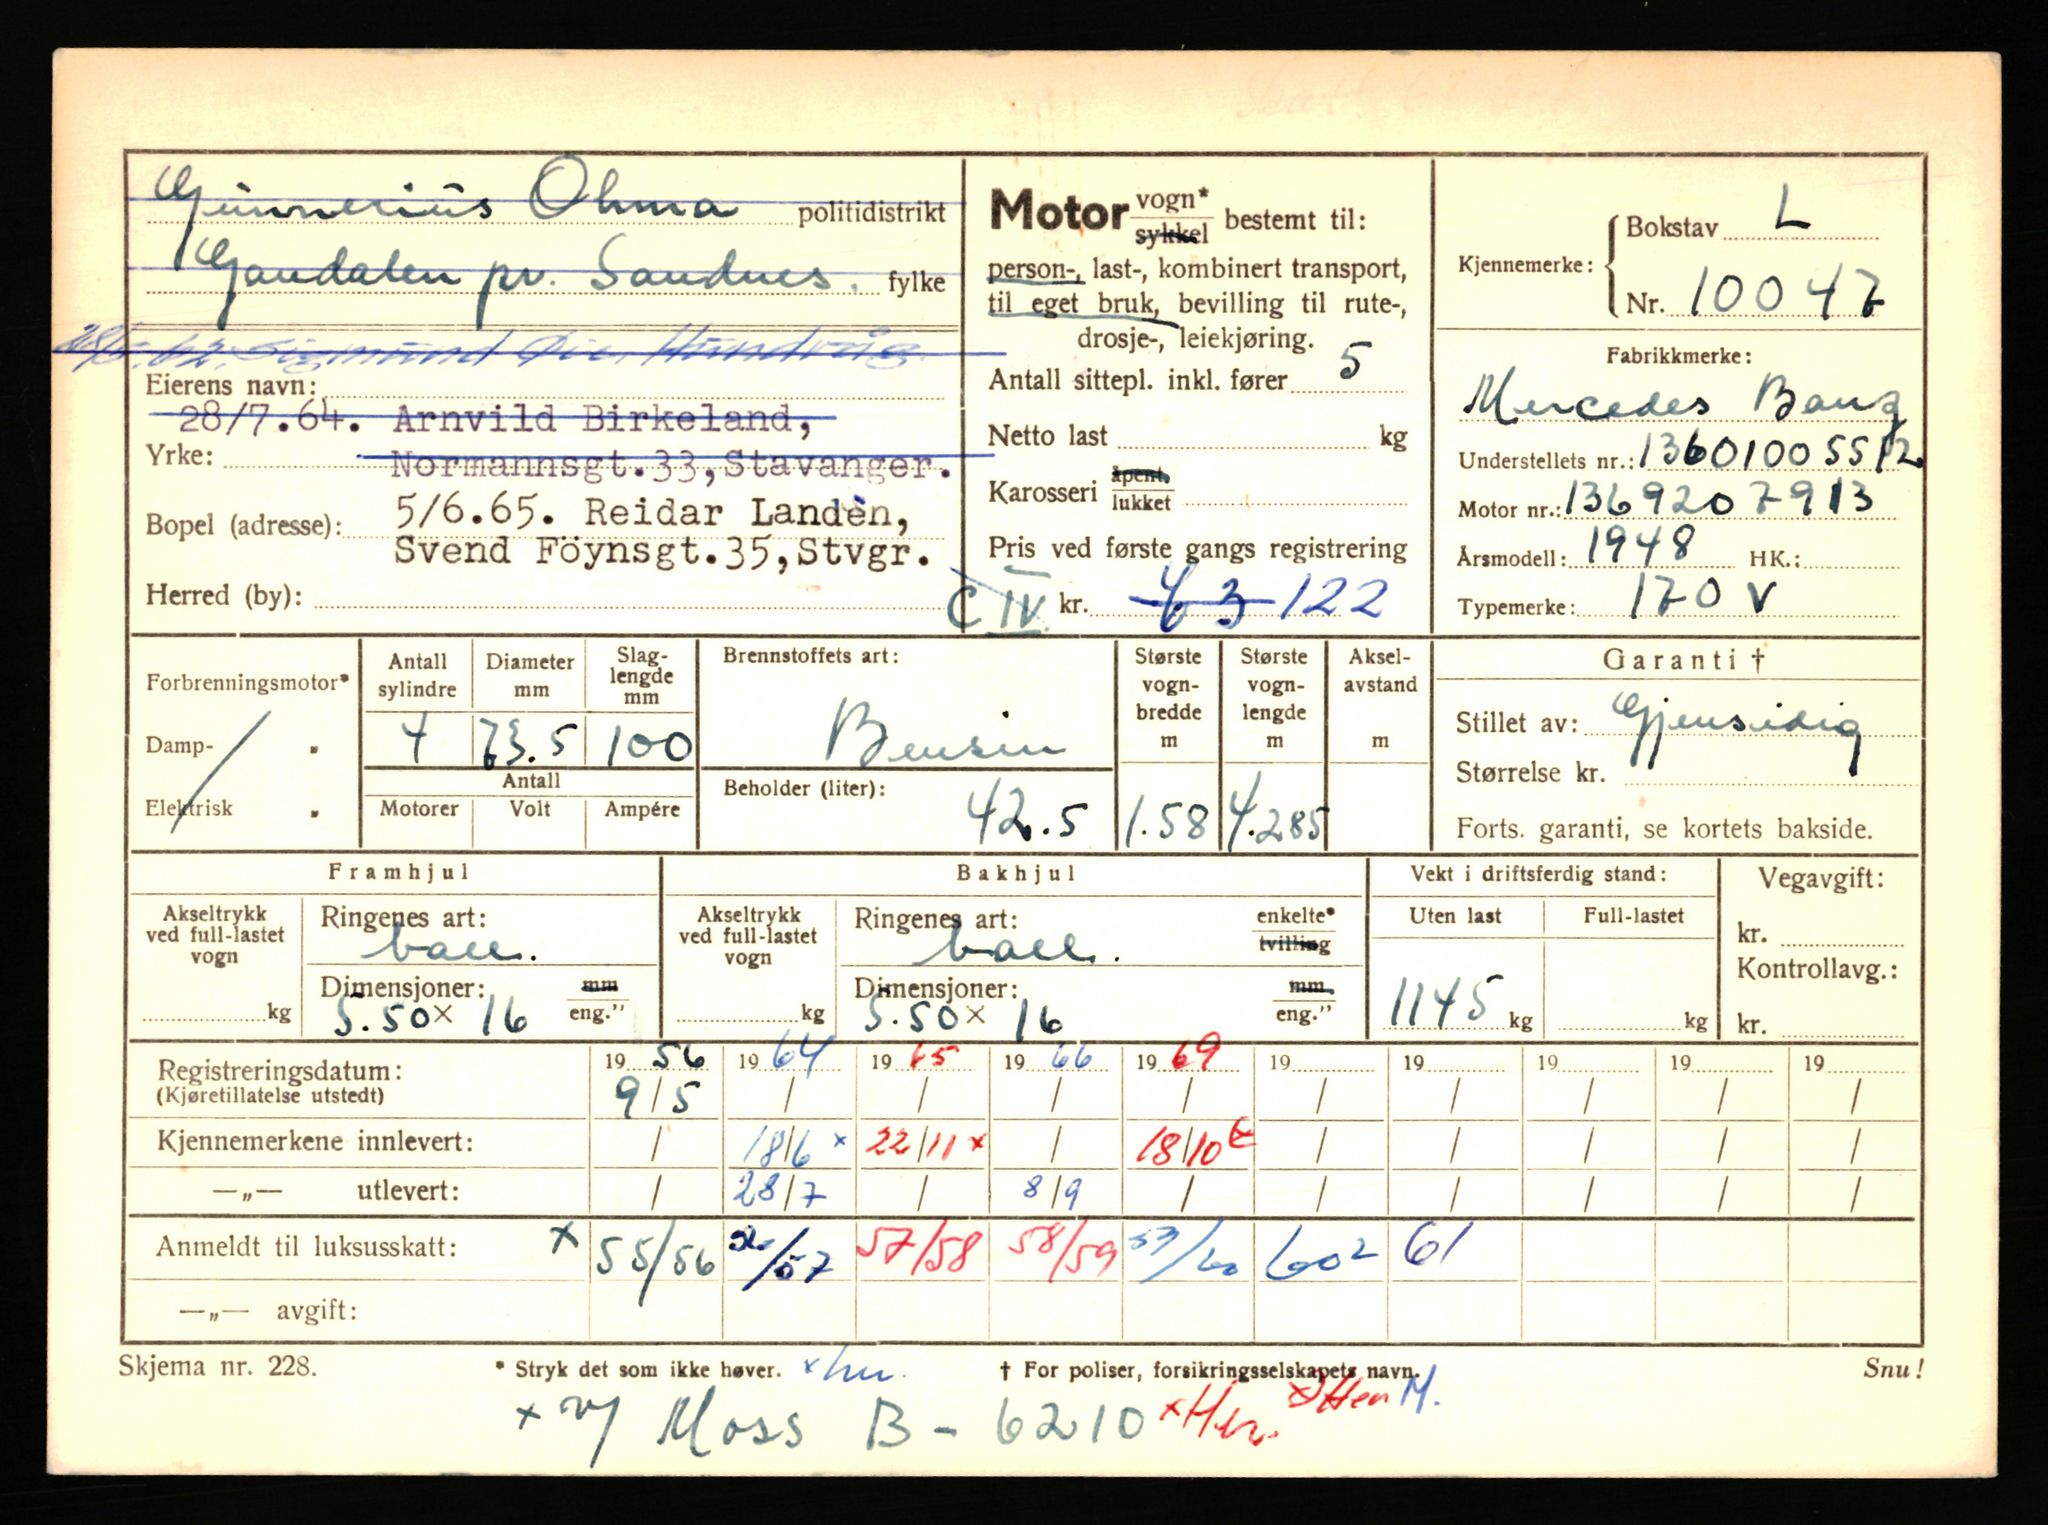 Gunnerius Ohma politidistrikt
Gandalen pr. Sandnes. fylke
Sigmund Øie, Hundvåg.
Eierens navn:
28/7.64. Arnvild Birkeland,
Yrke:
Normannsgt.33,Stavanger.
Bopel (adresse):
5/6.65. Reidar Landèn,
Svend Föynsgt.35,Stvgr.
Herred (by):
Motor vogn* sykkel bestemt til:
person-, last-, kombinert transport,
til eget bruk, bevilling til rute-,
drosje-, leiekjøring.
Antall sittepl. inkl. fører 5
Netto last kg
Karosseri åpent, lukket
Pris ved første gangs registrering
C IV kr. 122
Kjennemerke: Bokstav L
Nr. 10047
Fabrikkmerke:
Mercedes Banz
Understellets nr.: 13601005512
Motor nr.: 1369207913
Årsmodell: 1948 HK.:
Typemerke: 170 V
Forbrenningsmotor*
Damp- "
Elektrisk "
Antall sylindre Diameter mm Slag-lengde mm
4 73.5 100
Antall
Motorer Volt Ampére
Brennstoffets art:
Bensin
Beholder (liter):
42.5
Største vogn-bredde m
1.58
Største vogn-lengde m
4.285
Aksel-avstand m
Garanti †
Stillet av: Gjensidig
Størrelse kr.
Forts. garanti, se kortets bakside.
Framhjul
Akseltrykk ved full-lastet vogn
kg
Ringenes art:
ball.
Dimensjoner: mm eng."
5.50 x 16
Bakhjul
Akseltrykk ved full-lastet vogn
kg
Ringenes art: enkelte* tvilling
ball.
Dimensjoner: mm. eng."
5.50 x 16
Vekt i driftsferdig stand:
Uten last Full-lastet
1145 kg kg
Vegavgift:
kr.
Kontrollavg.:
kr.
Registreringsdatum: 19 56 19 64 19 65 19 66 19 69 19 19 19 19 19
(Kjøretillatelse utstedt) 9/5 / / / / / / / / /
Kjennemerkene innlevert: / 18/6 x 22/11 x / 18/10 / / / / /
—„— utlevert: / 28/7 / 8/9 / / / / / /
Anmeldt til luksusskatt: x 55/56 56/57 57/58 58/59 59/60 60² 61
—„— avgift:
Skjema nr. 228. * Stryk det som ikke høver. † For poliser, forsikringsselskapets navn. Snu!
x Moss B - 6210